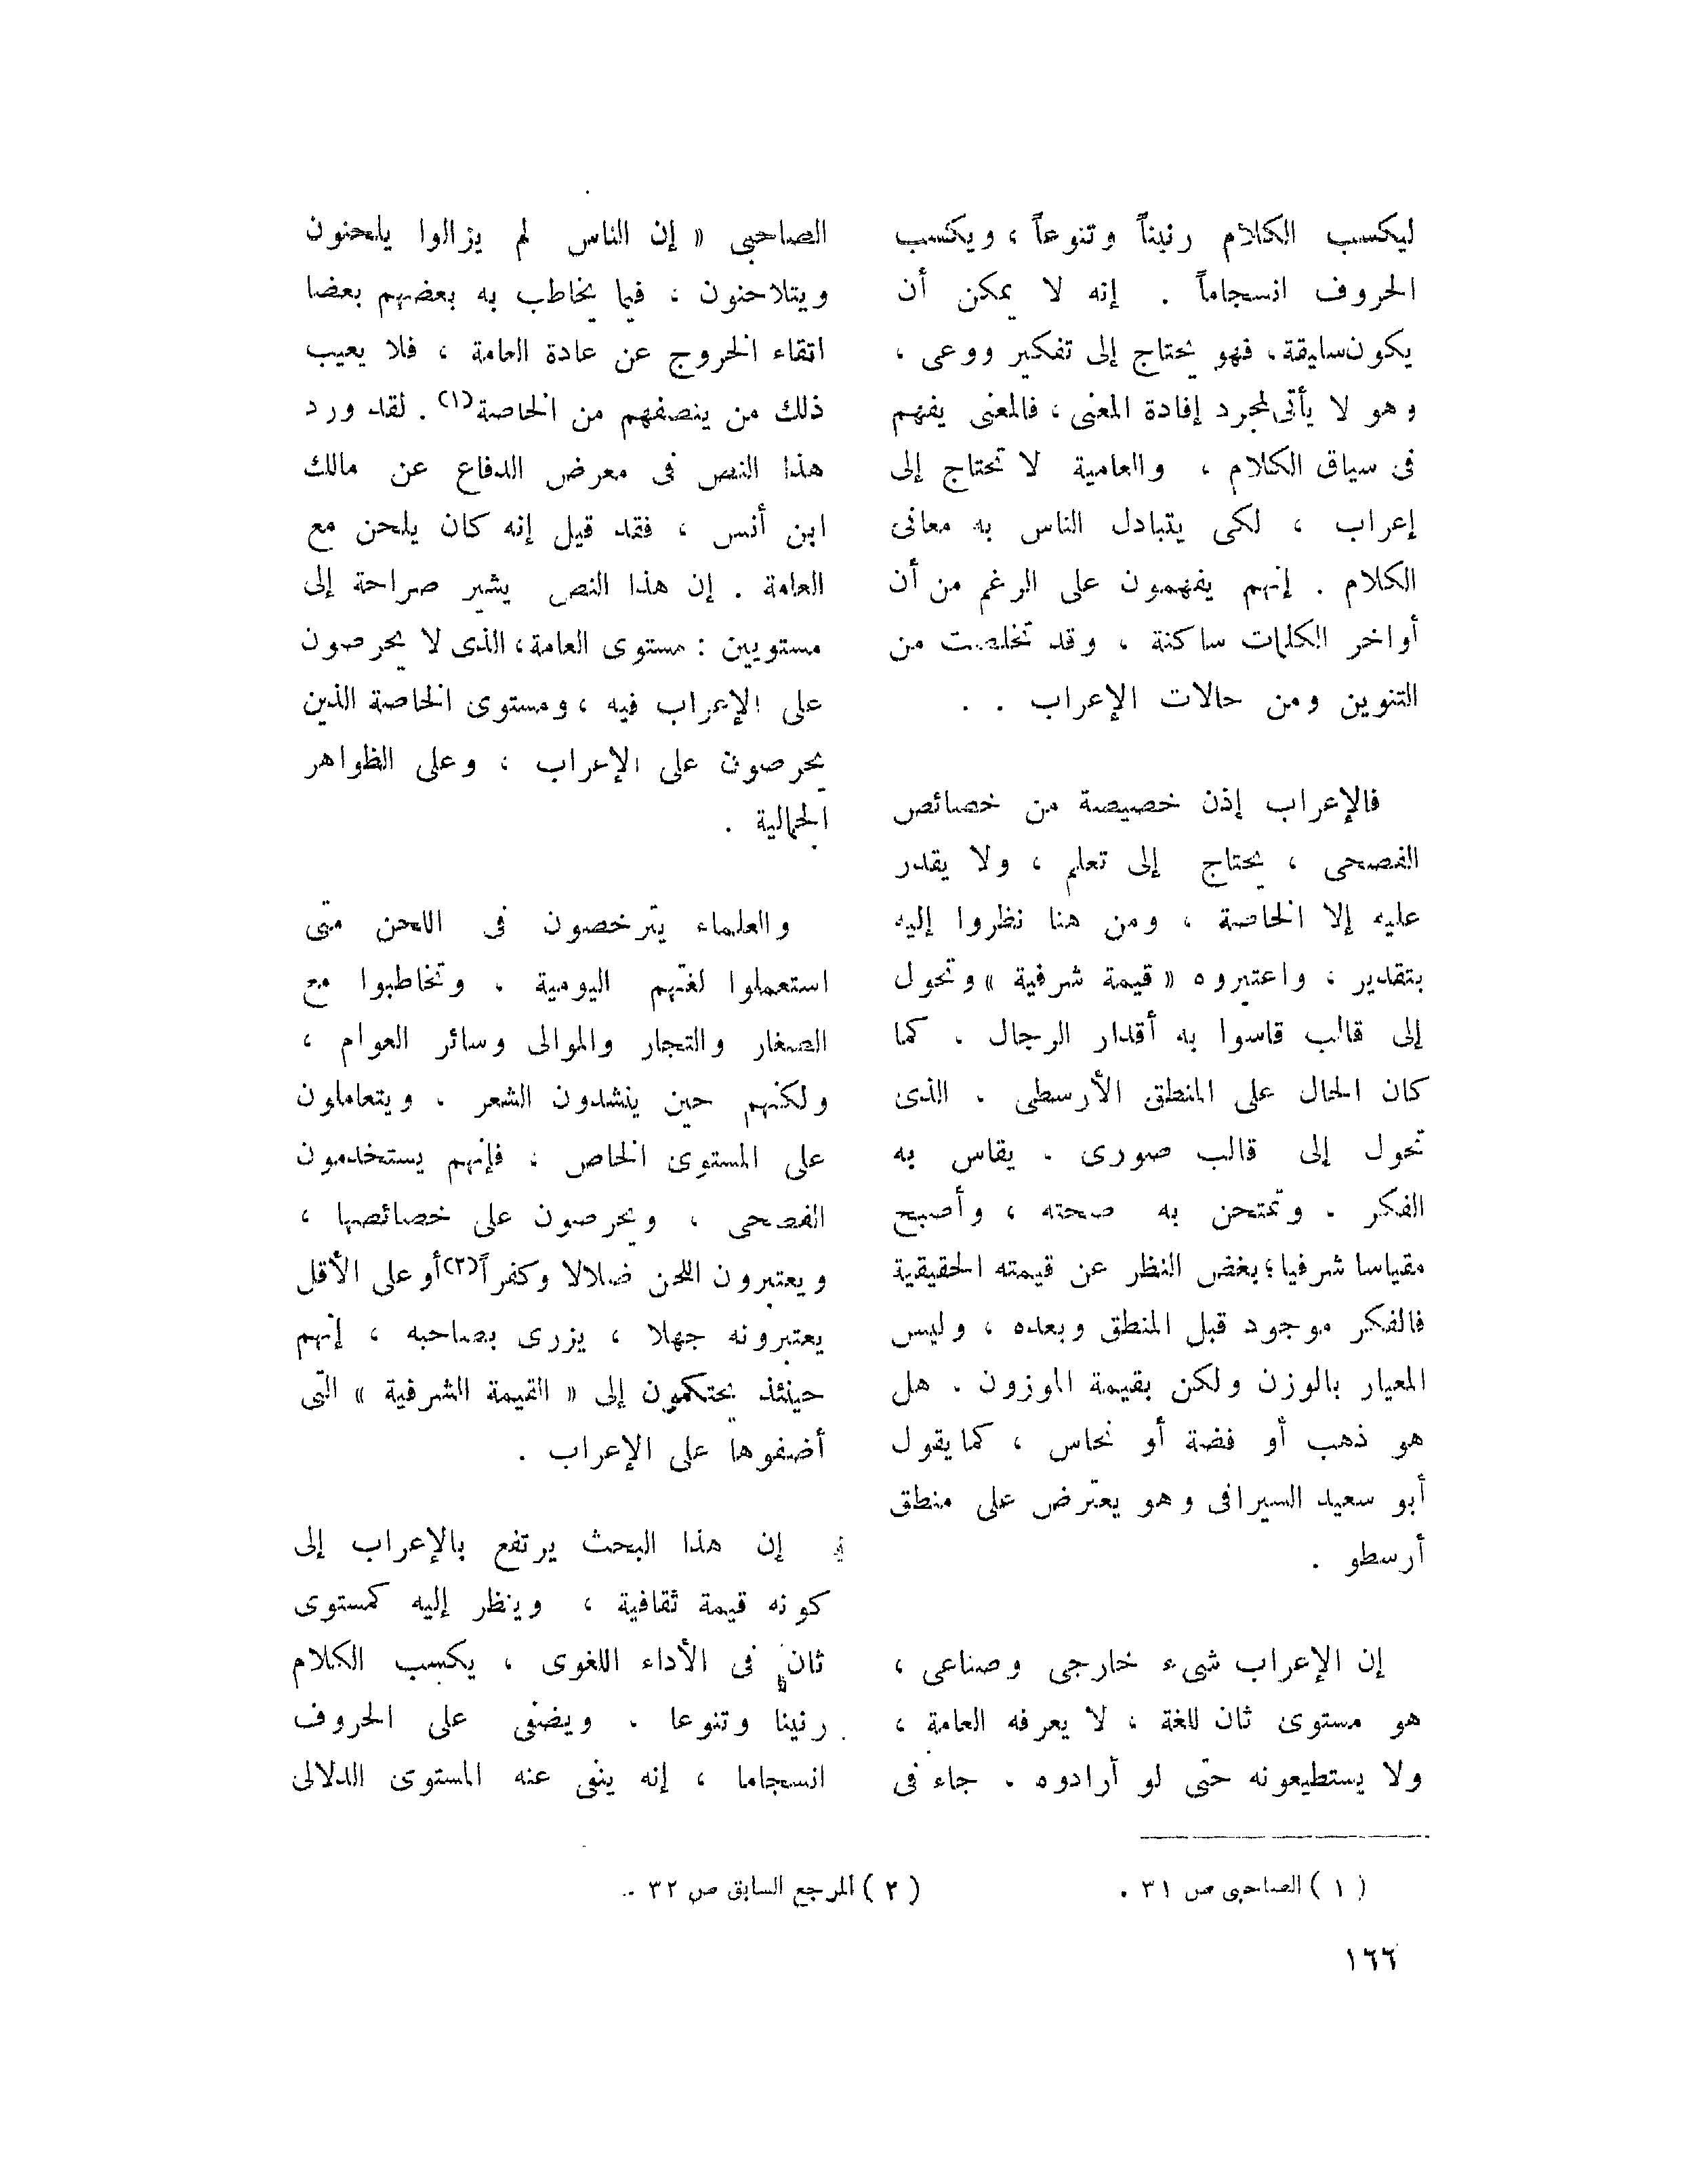 ليكسب الكلام رنيناً وتنوعاً ، ويكسب
الحروف انسجاماً . إنه لا يمكن أن
يكون سليقة ، فهو يحتاج إلى تفكير ووعى ،
وهو لا يأتى لمجرد إفادة المعنى ، فالمعنى يفهم
فى سياق الكلام ، والعامية لا تحتاج إلى
إعراب ، لكى يتبادل الناس به معانى
الكلام . إنهم يفهمون على الرغم من أن
أواخر الكلمات ساكنة ، وقد تخلصت من
التنوين ومن حالات الإعراب . .
فالإعراب إذن خصيصة من خصائص
الفصحى ، يحتاج إلى تعلم ، ولا يقدر
عليه إلا الخاصة ، ومن هنا نظروا إليه
بتقدير ، واعتبروه « قيمة شرفية » وتحول
إلى قالب قاسوا به أقدار الرجال . كما
كان الحال على المنطق الأرسطى . الذى
تحول إلى قالب صورى . يقاس به
الفكر . وتمتحن به صحته ، وأصبح
مقياسا شرفيا ؛ بغض النظر عن قيمته الحقيقية
فالفكر موجود قبل المنطق وبعده ، وليس
المعيار بالوزن ولكن بقيمة الموزون . هل
هو ذهب أو فضة أو نحاس ، كما يقول
أبو سعيد السيرافى وهو يعترض على منطق
أرسطو .
إن الإعراب شىء خارجى وصناعى ،
هو مستوى ثان للغة ، لا يعرفه العامة ،
ولا يستطيعونه حتى لو أرادوه . جاء فى
الصاحبى « إن الناس لم يزالوا يلحنون
ويتلاحنون ، فيما يخاطب به بعضهم بعضا
اتقاء الخروج عن عادة العامة ، فلا يعيب
ذلك من ينصفهم من الخاصة (١) . لقد ورد
هذا النص فى معرض الدفاع عن مالك
ابن أنس ، فقد قيل إنه كان يلحن مع
العامة . إن هذا النص يشير صراحة إلى
مستويين : مستوى العامة ، الذى لا يحرصون
على الإعراب فيه ، ومستوى الخاصة الذين
يحرصون على الإعراب ، وعلى الظواهر
الجمالية .
والعلماء يترخصون فى اللحن متى
استعملوا لغتهم اليومية . وتخاطبوا مع
الصغار والتجار والموالى وسائر العوام ،
ولكنهم حين ينشدون الشعر . ويتعاملون
على المستوى الخاص ، فإنهم يستخدمون
الفصحى ، ويحرصون على خصائصها ،
ويعتبرون اللحن ضلالا وكفراً (٢) أو على الأقل
يعتبرونه جهلا ، يزرى بصاحبه ، إنهم
حينئذ يحتكمون إلى « القيمة الشرفية » التى
أضفوها على الإعراب .
إن هذا البحث يرتفع بالإعراب إلى
كونه قيمة ثقافية ، وينظر إليه كمستوى
ثان فى الأداء اللغوى ، يكسب الكلام
رنينا وتنوعا . ويضفى على الحروف
انسجاما ، إنه ينفى عنه المستوى الدلالى
( ١ ) الصاحبى ص ٣١ .
( ٢ ) المرجع السابق ص ٣٢ .
١٦٦